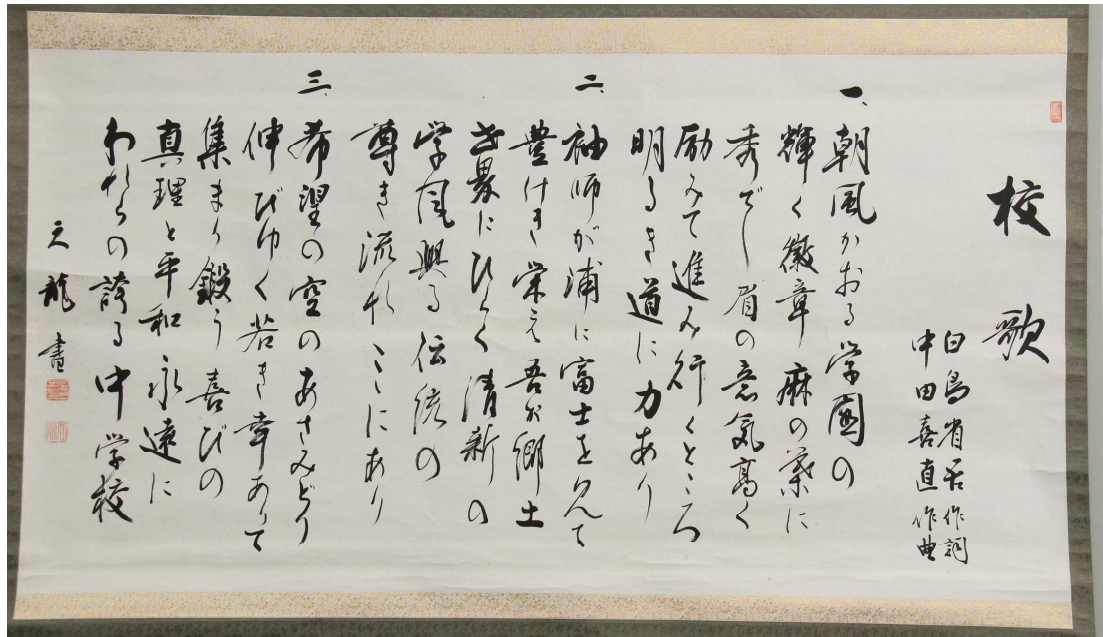 校歌
白鳥省吾作詞
中田喜直作曲
一、
朝風かおる学園の
輝く徽章麻の葉に
秀でし眉の意気高く
励みて進み行くところ
明るき道に力あり
二、
袖師が浦に富士を見て
豊けき栄え吾が郷土
世界にひらく清新の
学風興る伝統の
尊き流れここにあり
三、
希望の空のあさみどり
伸びゆく若き幸ありて
集まり鍛う喜びの
真理と平和永遠に
われらの誇る中学校
天龍書